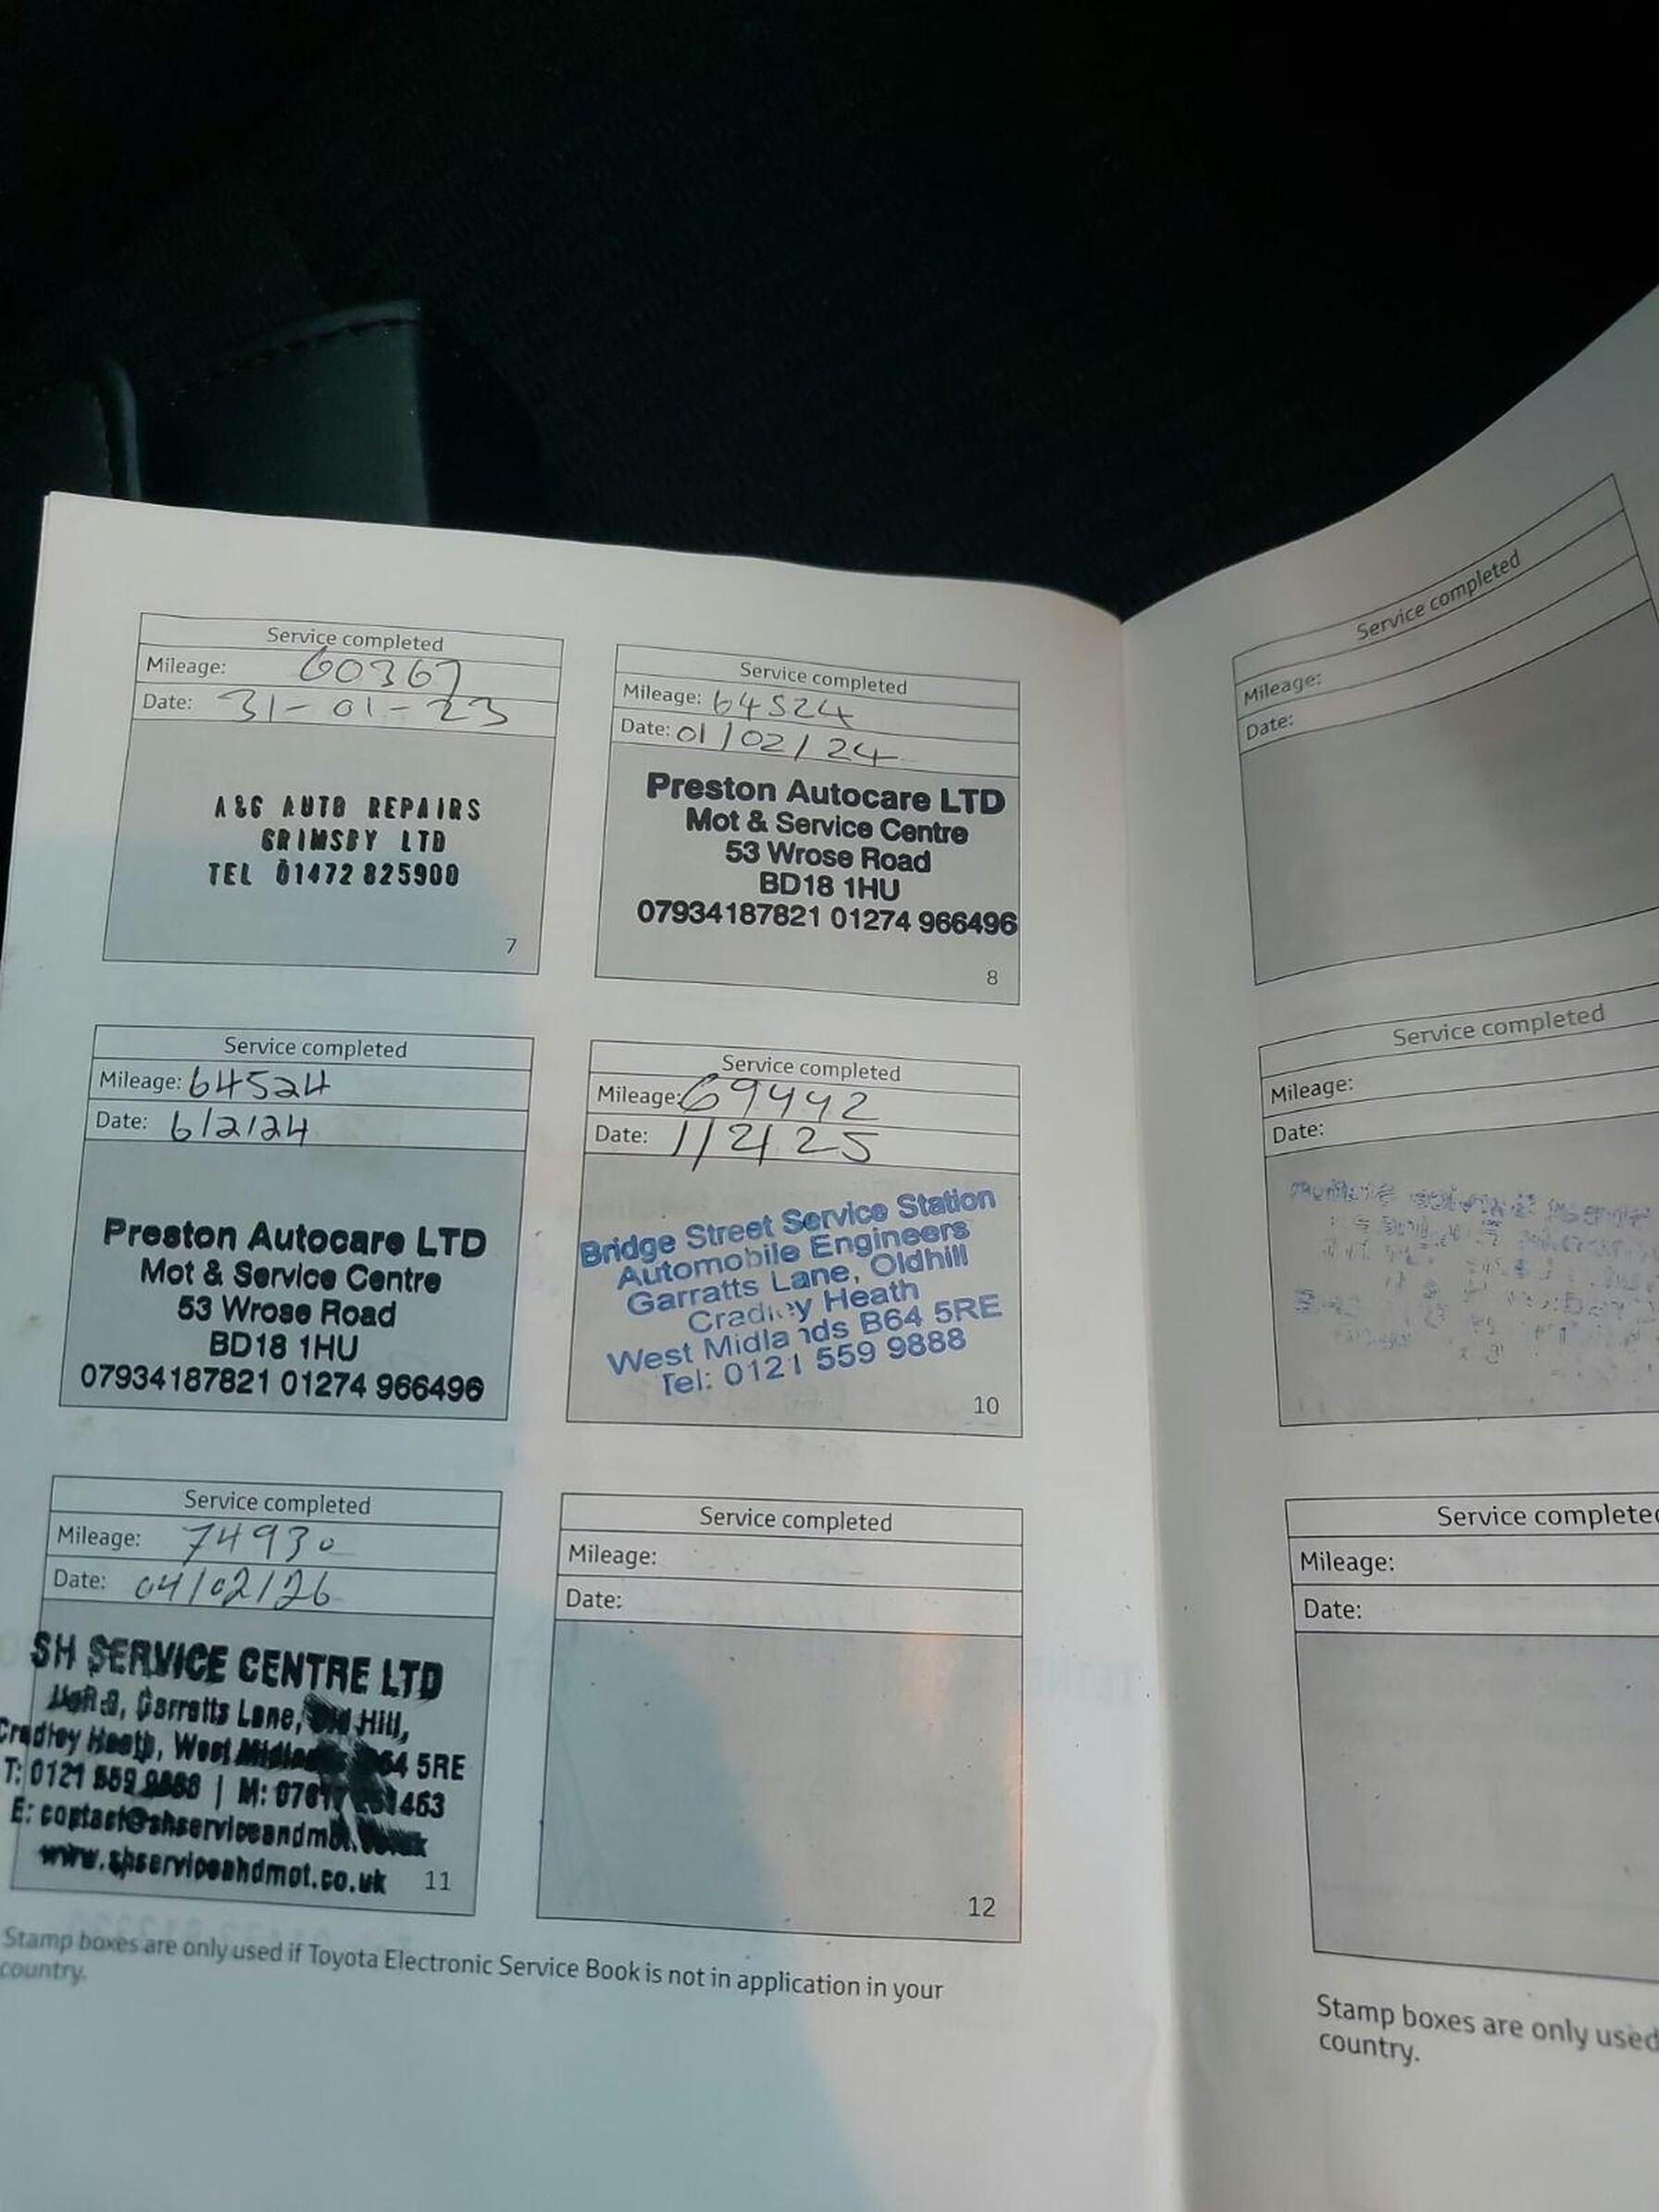 Service completed
Mileage: 60367
Date: 31-01-23
A&G AUTO REPAIRS
GRIMSBY LTD
TEL 01472 825900
7
Service completed
Mileage: 64524
Date: 01/02/24
Preston Autocare LTD
Mot & Service Centre
53 Wrose Road
BD18 1HU
07934187821 01274 966496
8
Service completed
Mileage: 64524
Date: 6/2/24
Preston Autocare LTD
Mot & Service Centre
53 Wrose Road
BD18 1HU
07934187821 01274 966496
Service completed
Mileage: 69442
Date: 1/2/25
Bridge Street Service Station
Automobile Engineers
Garratts Lane, Oldhill
Cradley Heath
West Midlands B64 5RE
Tel: 0121 559 9888
10
Service completed
Mileage: 74930
Date: 04/02/26
SH SERVICE CENTRE LTD
Garratts Lane, Old Hill,
Cradley Heath, West Midlands B64 5RE
T: 0121 559 9888 | M:
E: contact@shserviceandmot.co.uk
www.shserviceandmot.co.uk
11
Service completed
Mileage:
Date:
12
Stamp boxes are only used if Toyota Electronic Service Book is not in application in your
country.
Service completed
Mileage:
Date:
Service completed
Mileage:
Date:
Service completed
Mileage:
Date:
Stamp boxes are only used
country.